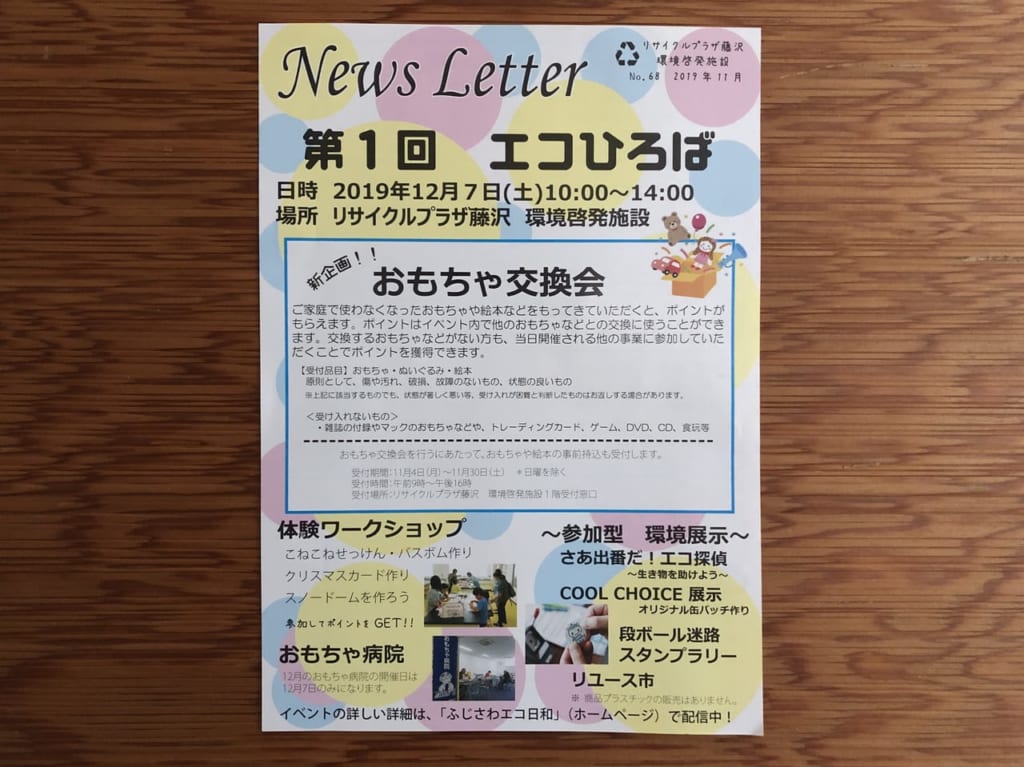 News Letter
リサイクルプラザ藤沢
環境啓発施設
No.68 2019年11月
第1回 エコひろば
日時 2019年12月7日(土)10:00～14:00
場所 リサイクルプラザ藤沢 環境啓発施設
新企画！！
おもちゃ交換会
ご家庭で使わなくなったおもちゃや絵本などをもってきていただくと、ポイントが
もらえます。ポイントはイベント内で他のおもちゃなどとの交換に使うことができ
ます。交換するおもちゃなどがない方も、当日開催される他の事業に参加していた
だくことでポイントを獲得できます。
【受付品目】おもちゃ・ぬいぐるみ・絵本
原則として、傷や汚れ、破損、故障のないもの、状態の良いもの
※上記に該当するものでも、状態が著しく悪い等、受け入れが困難と判断したものはお返しする場合があります。
＜受け入れないもの＞
・雑誌の付録やマックのおもちゃなどや、トレーディングカード、ゲーム、DVD、CD、食玩等
おもちゃ交換会を行うにあたって、おもちゃや絵本の事前持込も受付します。
受付期間：11月4日（月）～11月30日（土） ＊日曜を除く
受付時間：午前9時～午後16時
受付場所：リサイクルプラザ藤沢 環境啓発施設1階受付窓口
体験ワークショップ
こねこねせっけん・バスボム作り
クリスマスカード作り
スノードームを作ろう
参加してポイントをGET!!
おもちゃ病院
12月のおもちゃ病院の開催日は
12月7日のみになります。
おもちゃ病院
～参加型 環境展示～
さあ出番だ！エコ探偵
～生き物を助けよう～
COOL CHOICE 展示
オリジナル缶バッチ作り
段ボール迷路
スタンプラリー
リユース市
※ 商品プラスチックの販売はありません。
イベントの詳しい詳細は、「ふじさわエコ日和」（ホームページ）で配信中！